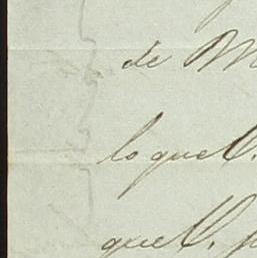 de M
lo que V.
que V. p